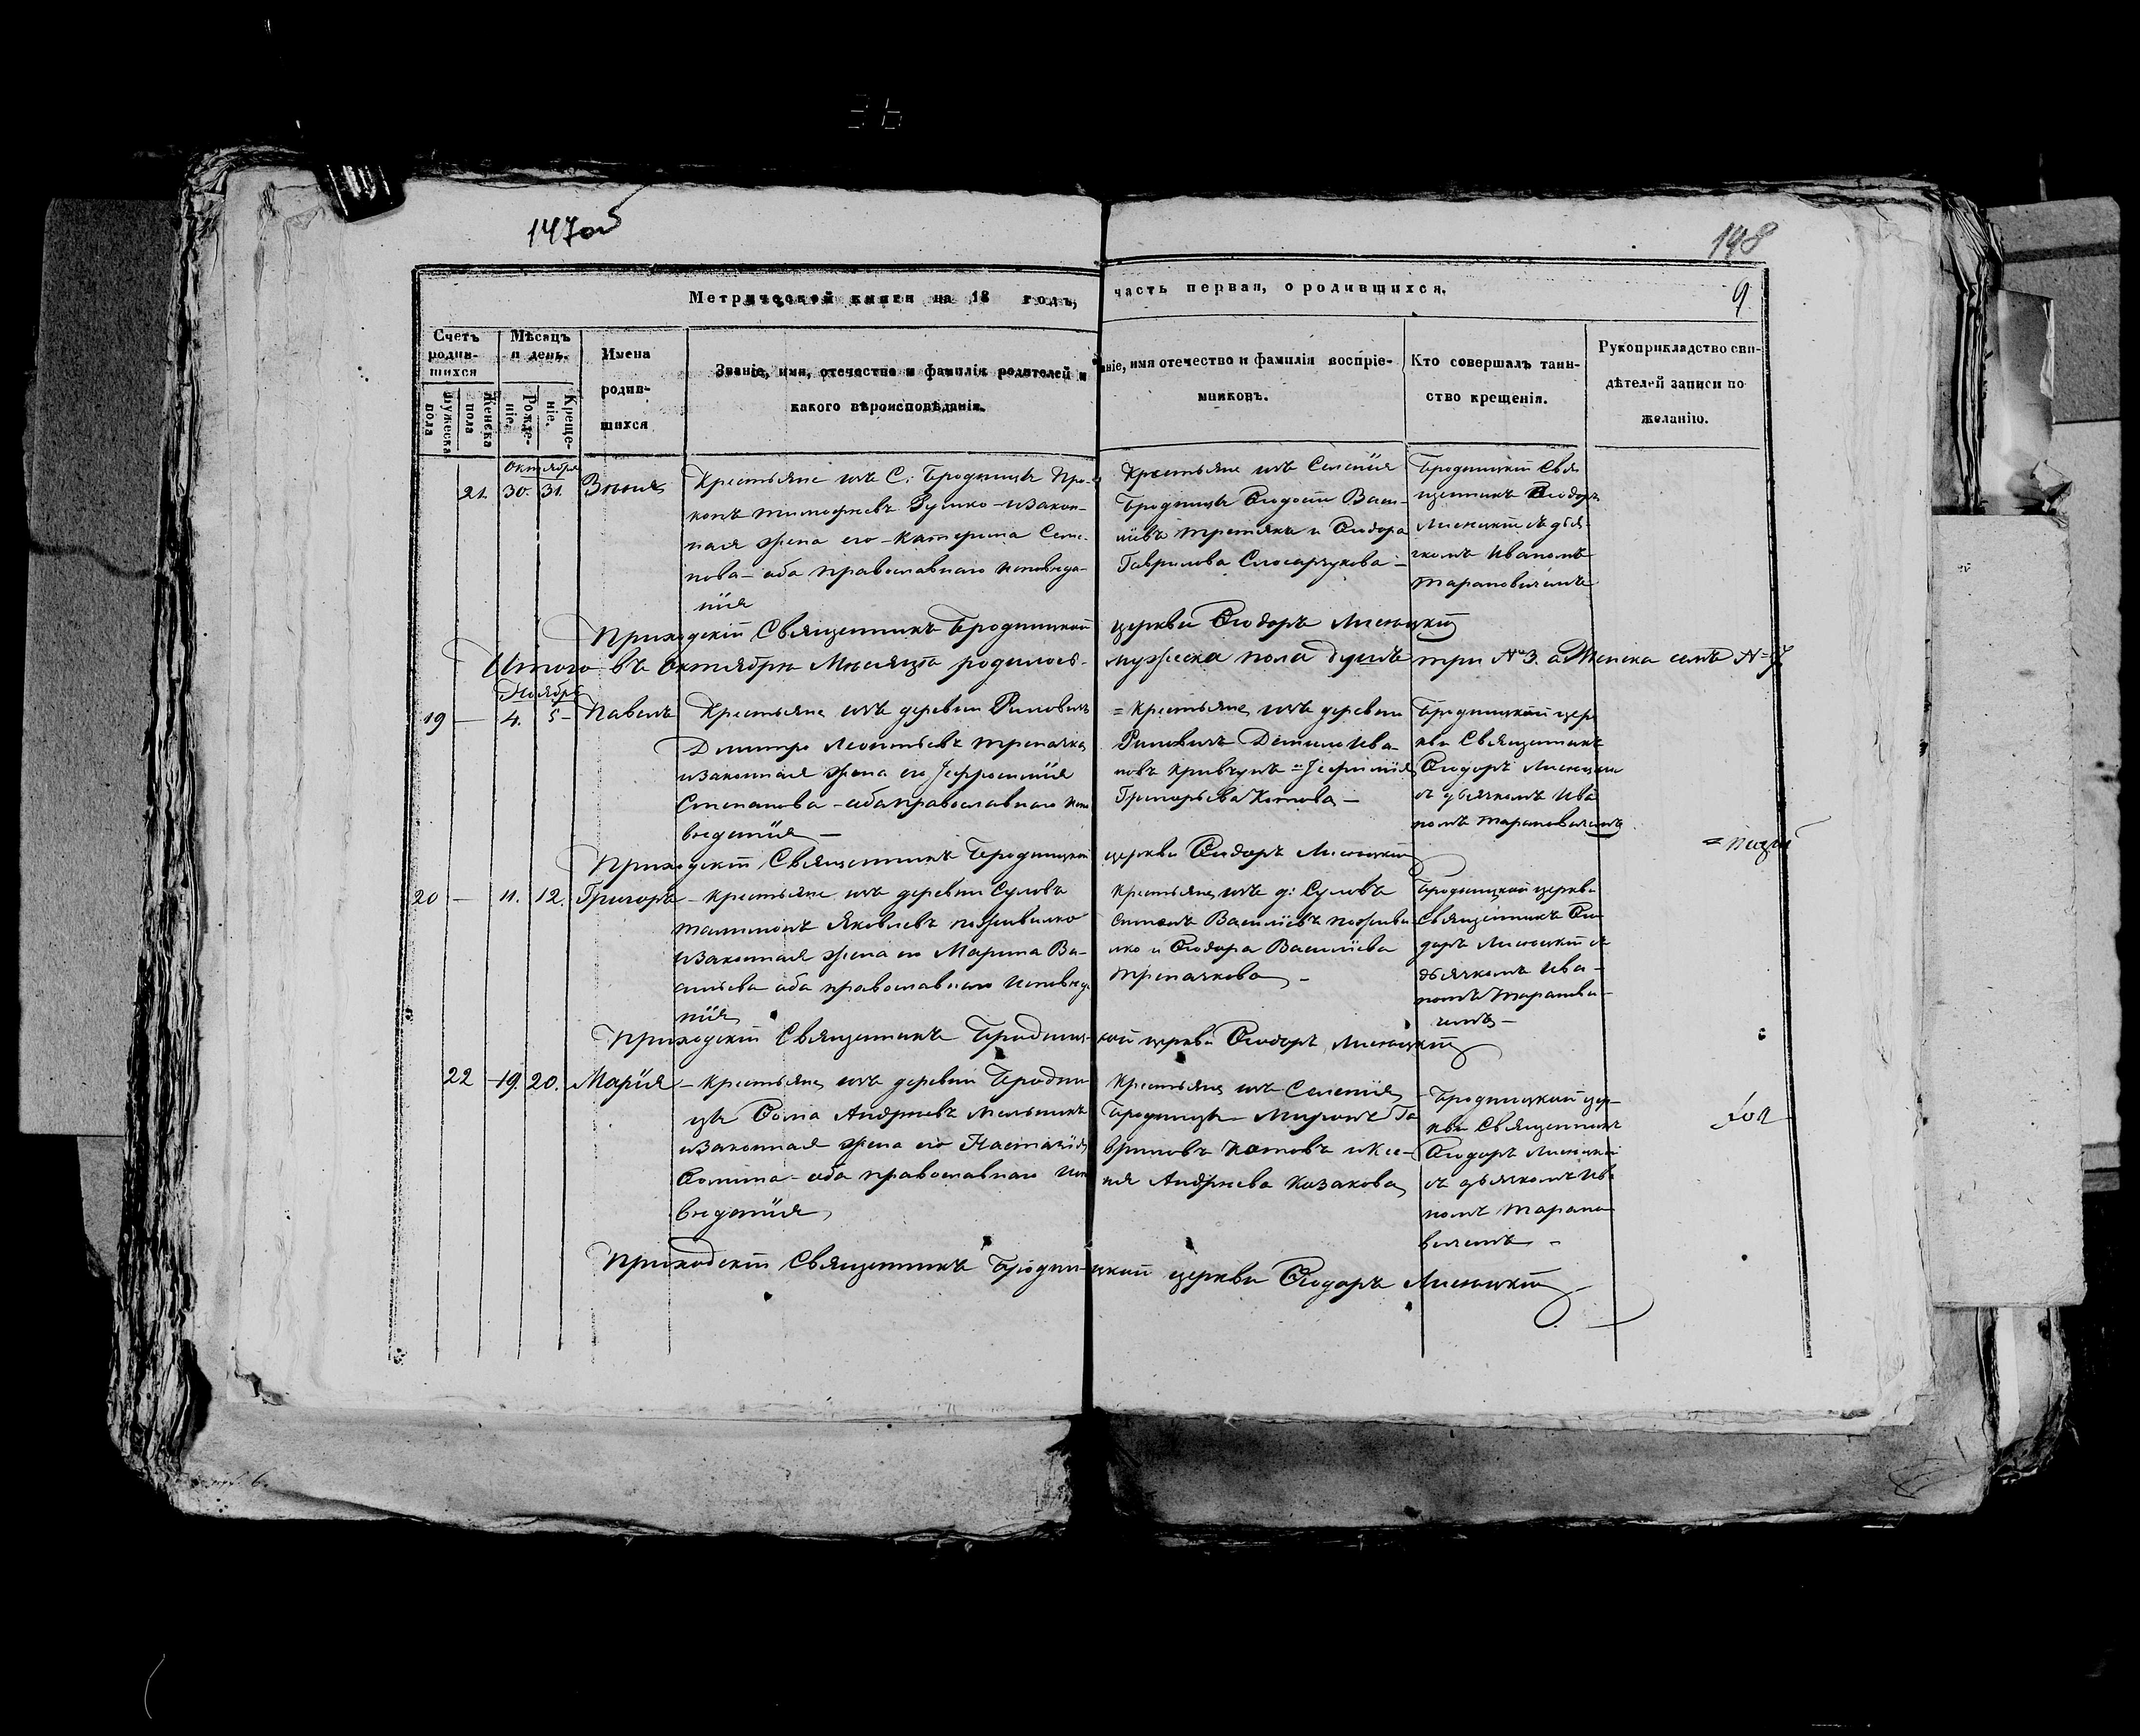 147об
148
9
Метрической книги на 18 годъ, часть первая, о родившихся.
Счетъ родив-
шихся
Мужеска пола
Женска пола
Мѣсяцъ и день.
Рожде-
ніе.
Креще-
ніе.
Имена
родив-
шихся
Званіе, имя, отечество и фамилія родителей и
какого вѣроисповѣданія.
ніе, имя отечество и фамилія воспріе-
мниковъ.
Кто совершалъ таин-
ство крещенія.
Рукоприкладство сви-
дѣтелей записи по
желанію.
Октября
21. 30. 31.
Крестьяне изъ С. Бродницы Про-
копъ Тимофѣевъ и закон-
ная жена его Катерина Семе-
нова – оба православнаго исповѣда-
нія
Крестьяне изъ Селенія
Бродницы Ѳеодосій Васи-
ліевъ Третякъ и Ѳеодора
Гаврилова Слюсарчукова –
Бродницкій Свя
щенникъ Ѳеодоръ
Лисецкій съ дья-
чкомъ Иваномъ
Тарановичемъ
Приходскій Священникъ Бродницкой церкви Ѳеодоръ Лисецкій
Итого въ Октябрѣ Мѣсяцѣ родилось мужеска пола душъ три № 3. а Женска семъ № 7
Ноября
19 – 4. 5 – Павелъ
Крестьяне изъ деревни
Димитро Леонтьевъ Трепачка
и законная жена его Іефросинія
Степанова – оба православнаго испо
вѣданія –
= Крестьяне изъ деревни
Данило Ива-
новъ Кривчунъ = Іефимія
Григорьева Котова –
Бродницкой цер
кви Священникъ
Ѳеодоръ Лисецкій
съ дьячкомъ Ива
номъ Тарановичемъ
Приходскій Священникъ Бродницкой церкви Ѳеодоръ Лисецкій
20 – 11. 12. Григоръ
– Крестьяне изъ деревни Сулова
Яковлевъ
и законная жена его Марина Ва-
сильева оба православнаго исповѣда
нія
Крестьяне изъ д: Сулова
Василіевъ
и Ѳеодора Василіева
Трепачкова –
Бродницкой церкви
Священникъ Ѳео
доръ Лисецкій съ
дьячкомъ Ива-
номъ Таранови-
чемъ –
Приходскій Священникъ Бродниц-кой церкви Ѳеодоръ Лисецкій
22 – 19. 20. Марія
– Крестьяне изъ деревни Бродни
цы Ѳома Андреевъ Мельникъ
и законная жена его Настасія
Ѳомина – оба православнаго испо
вѣданія
Крестьяне изъ Селенія
Бродницы – Миронъ Га
вриловъ Котовъ и Ксе-
нія Андреева Казакова
Бродницкой цер-
кви Священникъ
Ѳеодоръ Лисецкій
съ дьячкомъ Ива
номъ Тарано
вичемъ –
Приходскій Священникъ Бродни-цкой церкви Ѳеодоръ Лисецкій